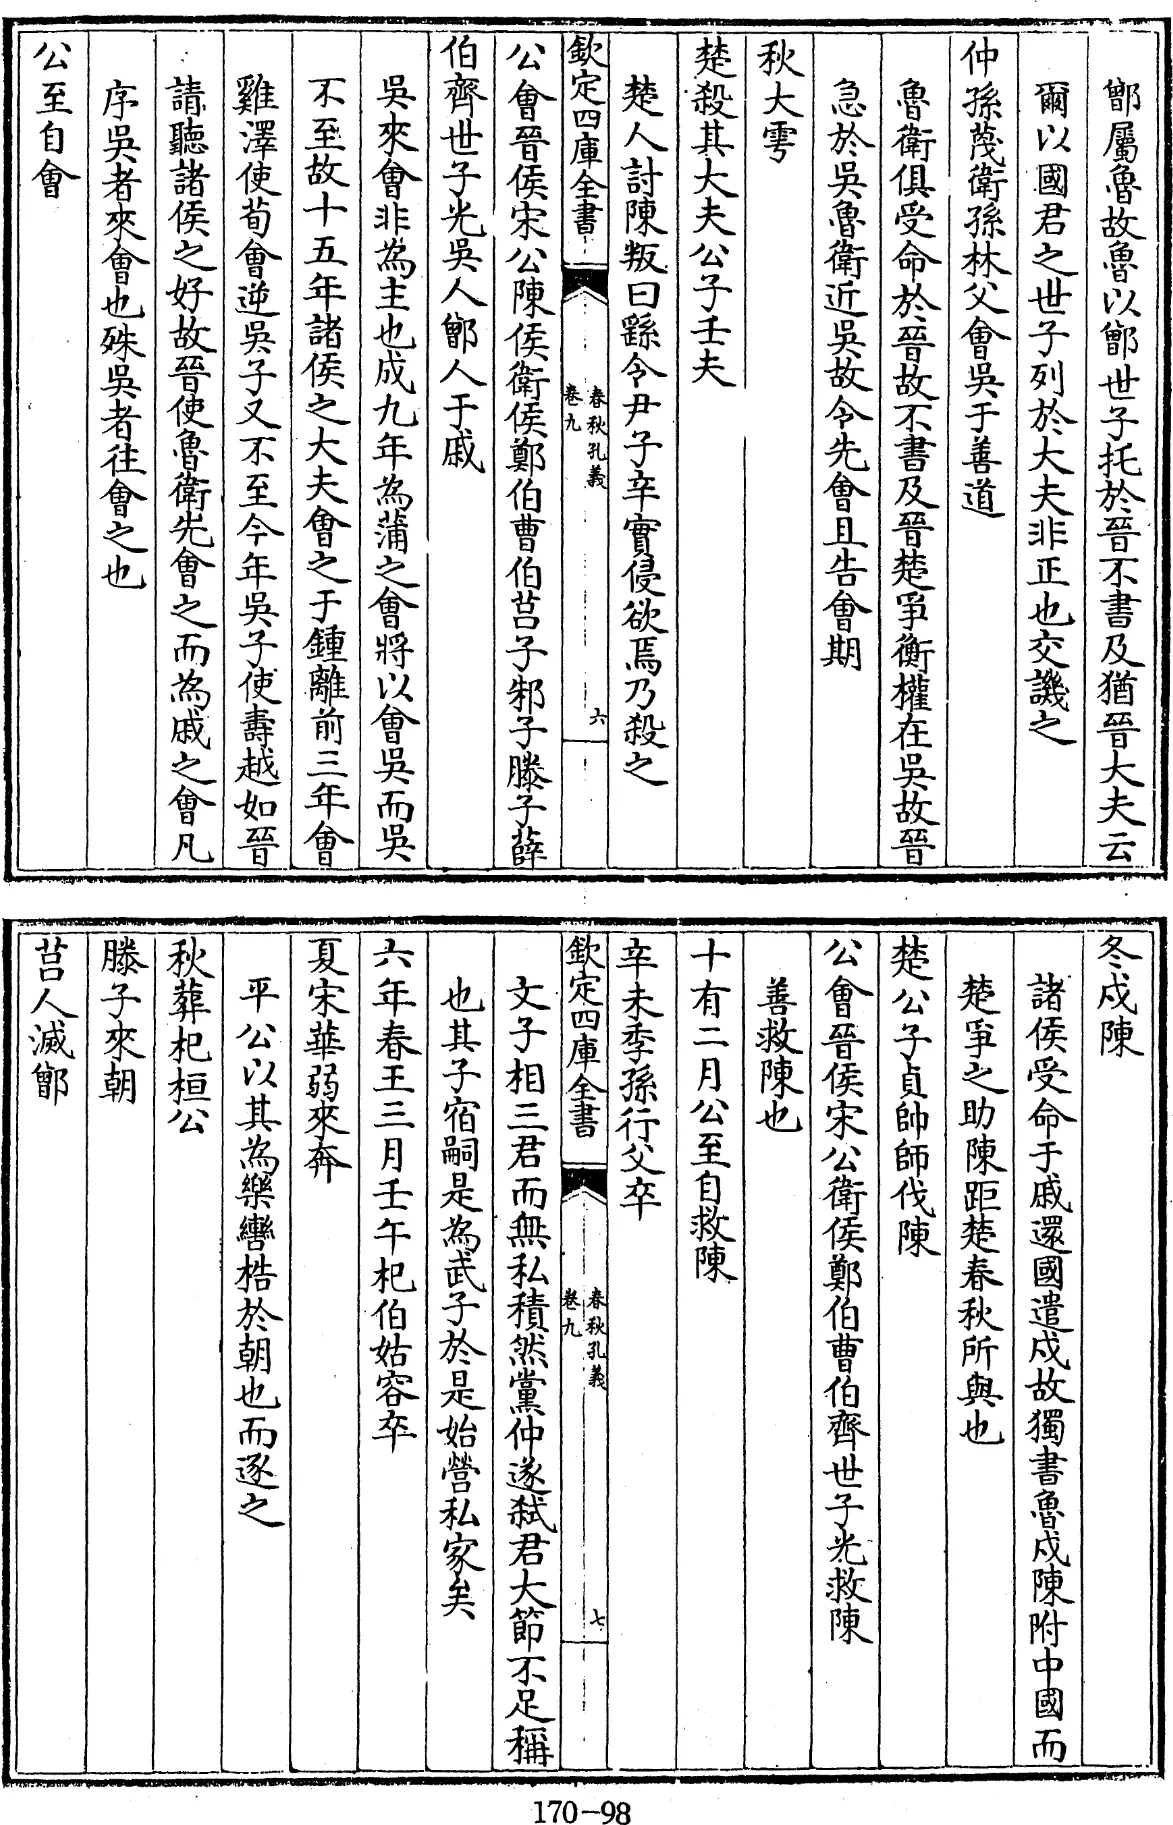 鄫屬魯故魯以鄫世子托於晉不書及猶晉大夫云
爾以國君之世子列於大夫非正也交譏之
仲孫蔑衛孫林父會吳于善道
魯衛俱受命於晉故不書及晉楚爭衡權在吳故晉
急於吳魯衛近吳故令先會且告會期
秋大雩
楚殺其大夫公子壬夫
楚人討陳叛曰繇令尹子辛實侵欲焉乃殺之
欽定四庫全書
春秋孔義
卷九
六
公會晉侯宋公陳侯衛侯鄭伯曹伯莒子邾子滕子薛
伯齊世子光吳人鄫人于戚
吳來會非為主也成九年為蒲之會將以會吳而吳
不至故十五年諸侯之大夫會之于鍾離前三年會
雞澤使荀會逆吳子又不至今年吳子使壽越如晉
請聽諸侯之好故晉使魯衛先會之而為戚之會凡
序吳者來會也殊吳者往會之也
公至自會
冬戍陳
諸侯受命于戚還國遣戍故獨書魯戍陳附中國而
楚爭之助陳距楚春秋所與也
楚公子貞帥師伐陳
公會晉侯宋公衛侯鄭伯曹伯齊世子光救陳
善救陳也
十有二月公至自救陳
辛未季孫行父卒
欽定四庫全書
春秋孔義
卷九
七
文子相三君而無私積然黨仲遂弒君大節不足稱
也其子宿嗣是為武子於是始營私家矣
六年春王三月壬午杞伯姑容卒
夏宋華弱來奔
平公以其為樂轡梏於朝也而逐之
秋葬杞桓公
滕子來朝
莒人滅鄫
170-98